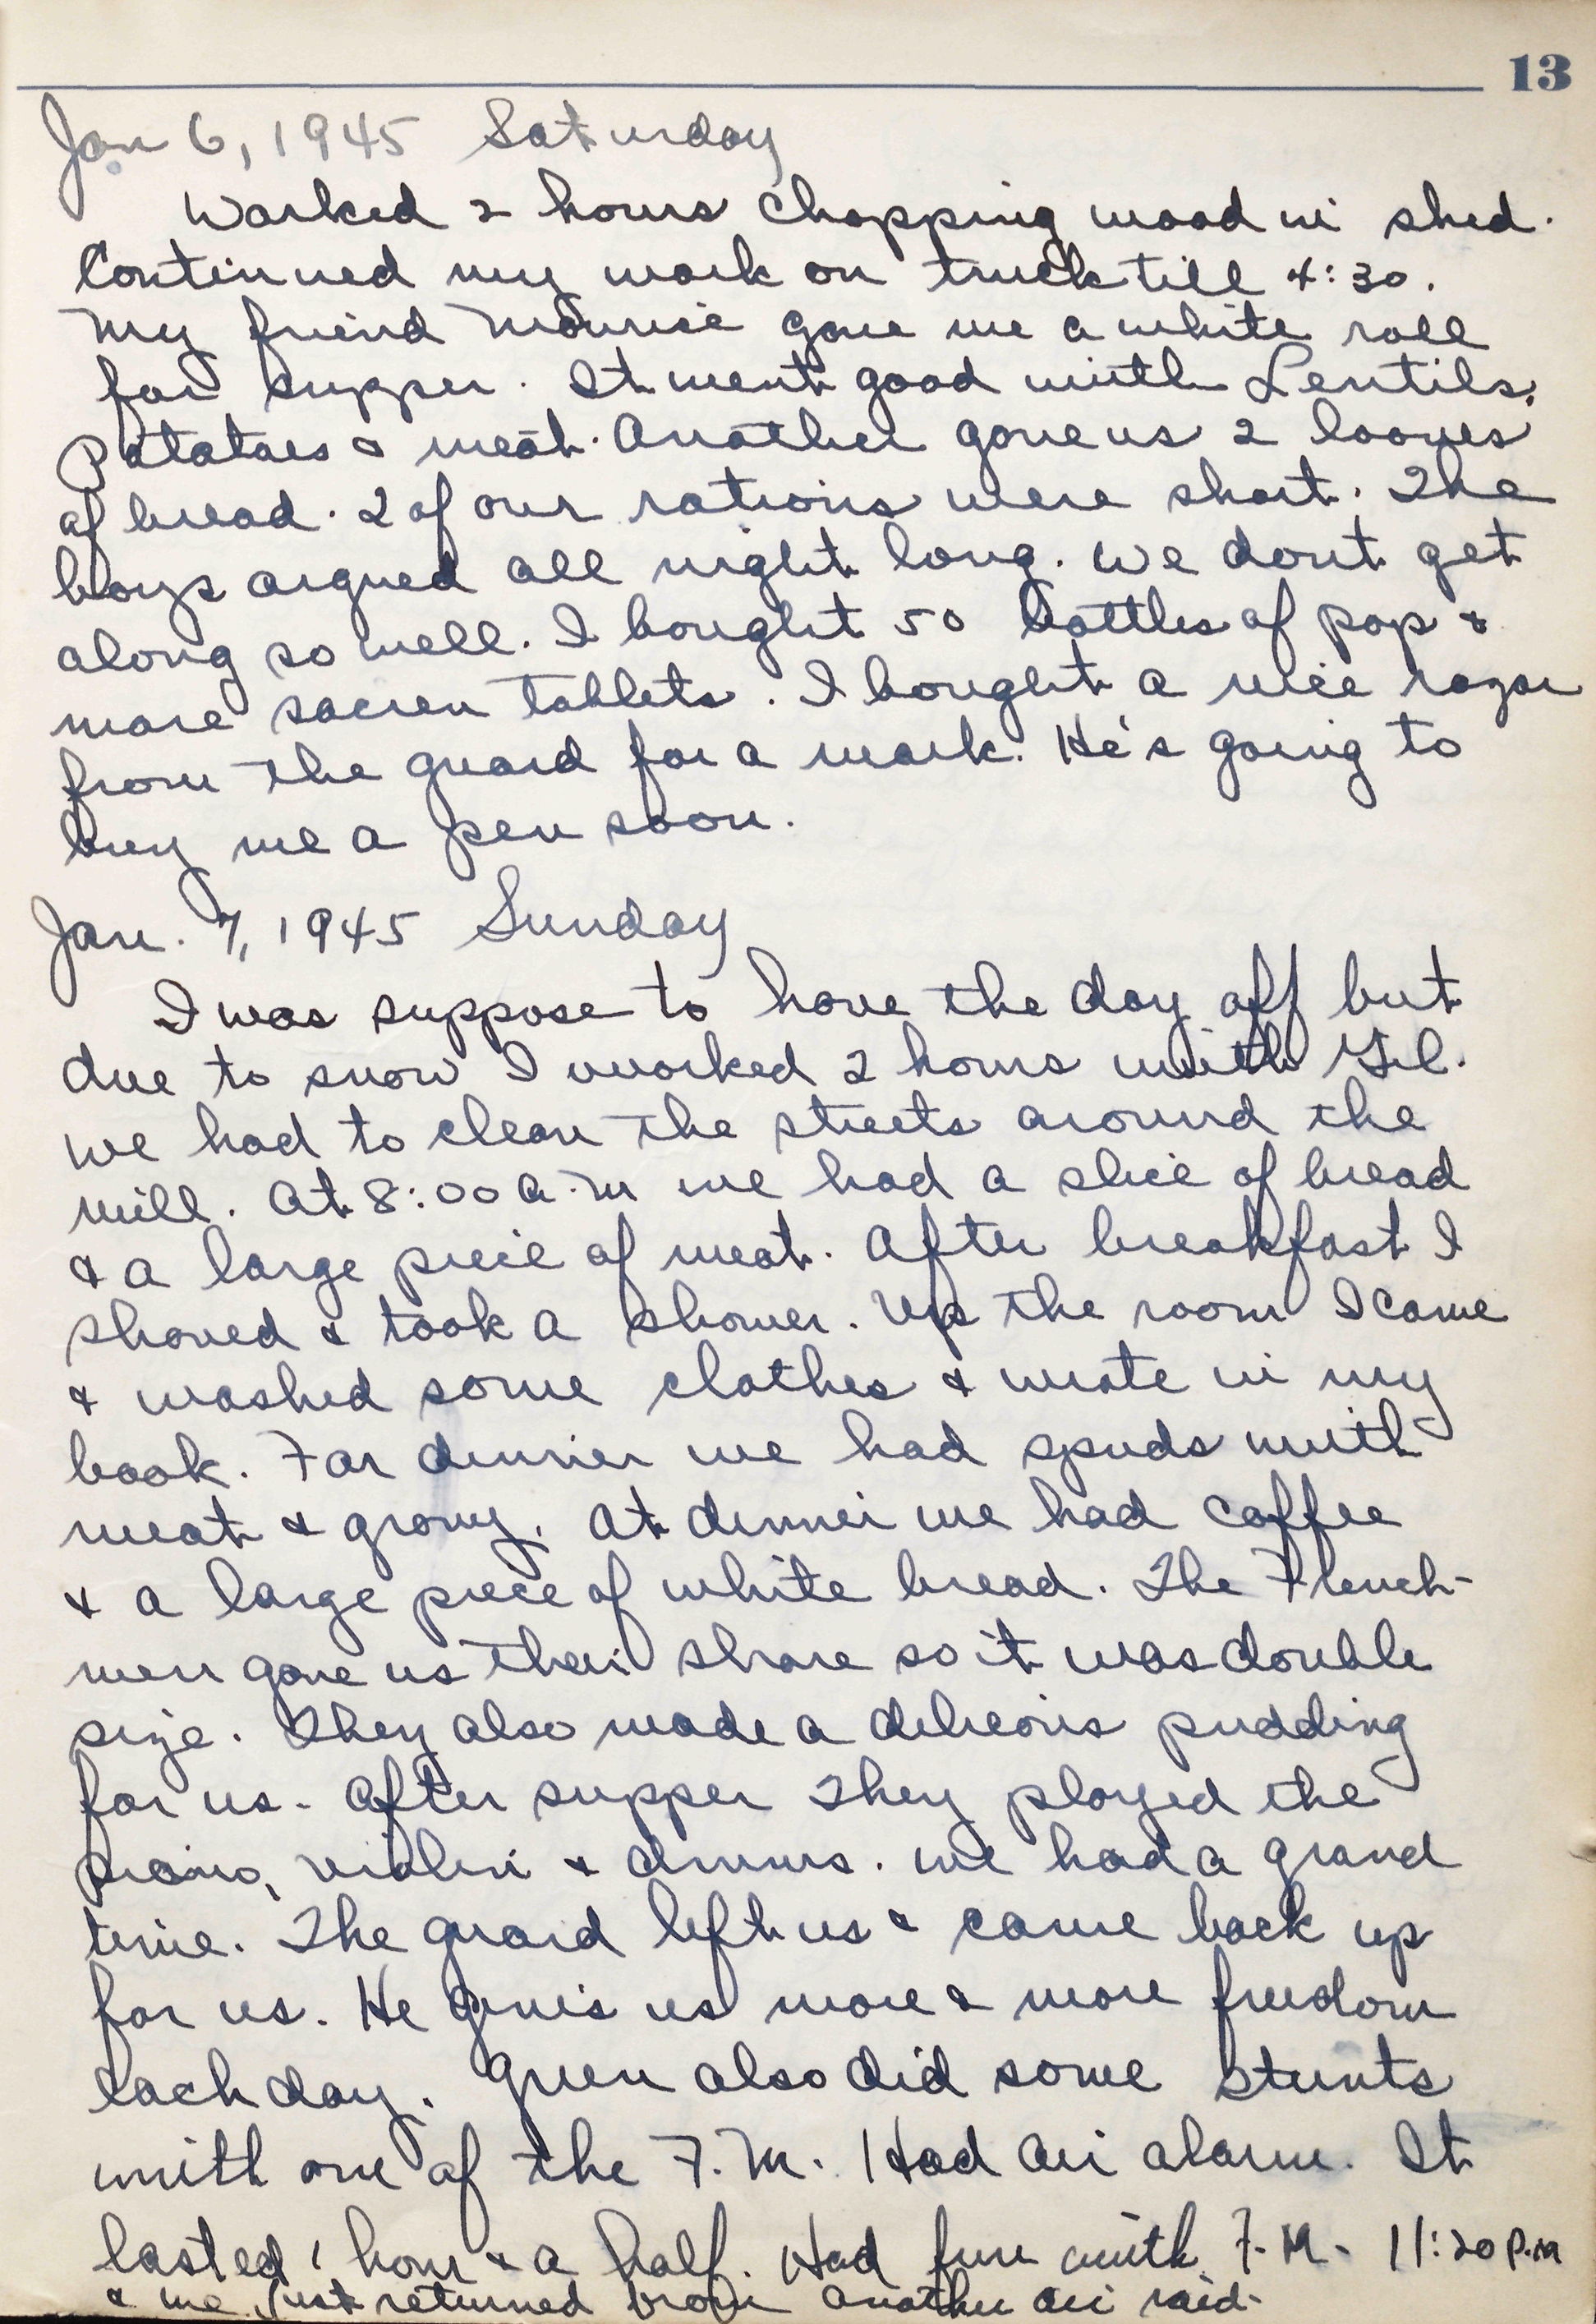 13
Jan 6, 1945 Saturday
Worked 2 hours chopping wood in shed.
Continued my work on truck till 4:30.
My friend Mourise gave me a white roll
for supper. It went good with Lentils,
Potatoes & meat. Another gave us 2 loaves
of bread. 2 of our rations were short. The
boys argued all night long. We dont get
along so well. I bought 50 bottles of pop &
more sacren tablets. I bought a nice razor
from the guard for a mark. He's going to
buy me a pen soon.
Jan. 7, 1945 Sunday
I was suppose to have the day off but
due to snow I worked 2 hours with Gil.
We had to clean the streets around the
mill. At 8:00 a.m we had a slice of bread
& a large piece of meat. After breakfast I
shaved & took a shower. Up the room I came
& washed some clothes & wrote in my
book. For dinner we had spuds with
meat & gravy. At dinner we had coffee
& a large piece of white bread. The French-
men gave us their share so it was double
size. They also made a delicous pudding
for us. After supper They played the
piano, violin & drums. We had a grand
time. The guard left us & came back up
for us. He gives us more & more freedom
each day. Green also did some stunts
with one of the F.M. Had air alarm. It
lasted 1 hour & a half. Had fun with F.M. 11:20 P.M
& we just returned from another air raid.